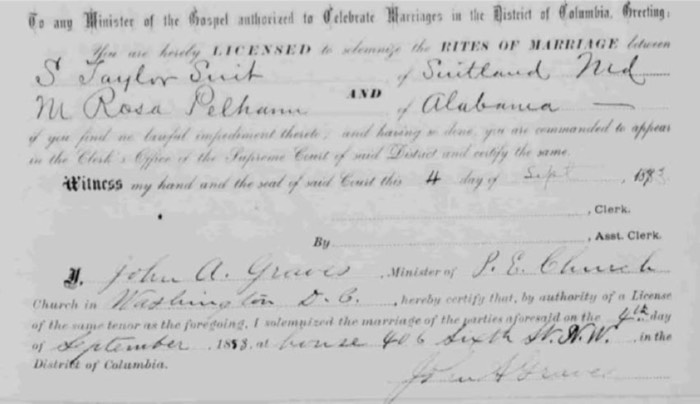 To any Minister of the Gospel authorized to Celebrate Marriages in the District of Columbia, Greeting:
You are hereby LICENSED to solemnize the RITES OF MARRIAGE between
S Taylor Suit of Suitland Md
AND
M Rosa Pelham of Alabama
if you find no lawful impediment thereto; and having so done, you are commanded to appear
in the Clerk's Office of the Supreme Court of said District and certify the same.
Witness my hand and the seal of said Court this 4 day of Sept , 188
, Clerk.
By , Asst. Clerk.
I, John A. Graves , Minister of P. E. Church
Church in Washington D. C. , hereby certify that, by authority of a License
of the same tenor as the foregoing, I solemnized the marriage of the parties aforesaid on the 4th day
of September 1883, at house 406 Sixth St. N.W. , in the
District of Columbia.
John A Graves